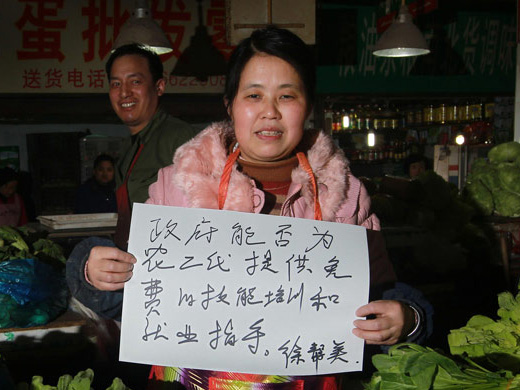 蛋批发
送货电话
货调味
政府能否为
农二代提供免
费的技能培训和
就业指导。徐 美.